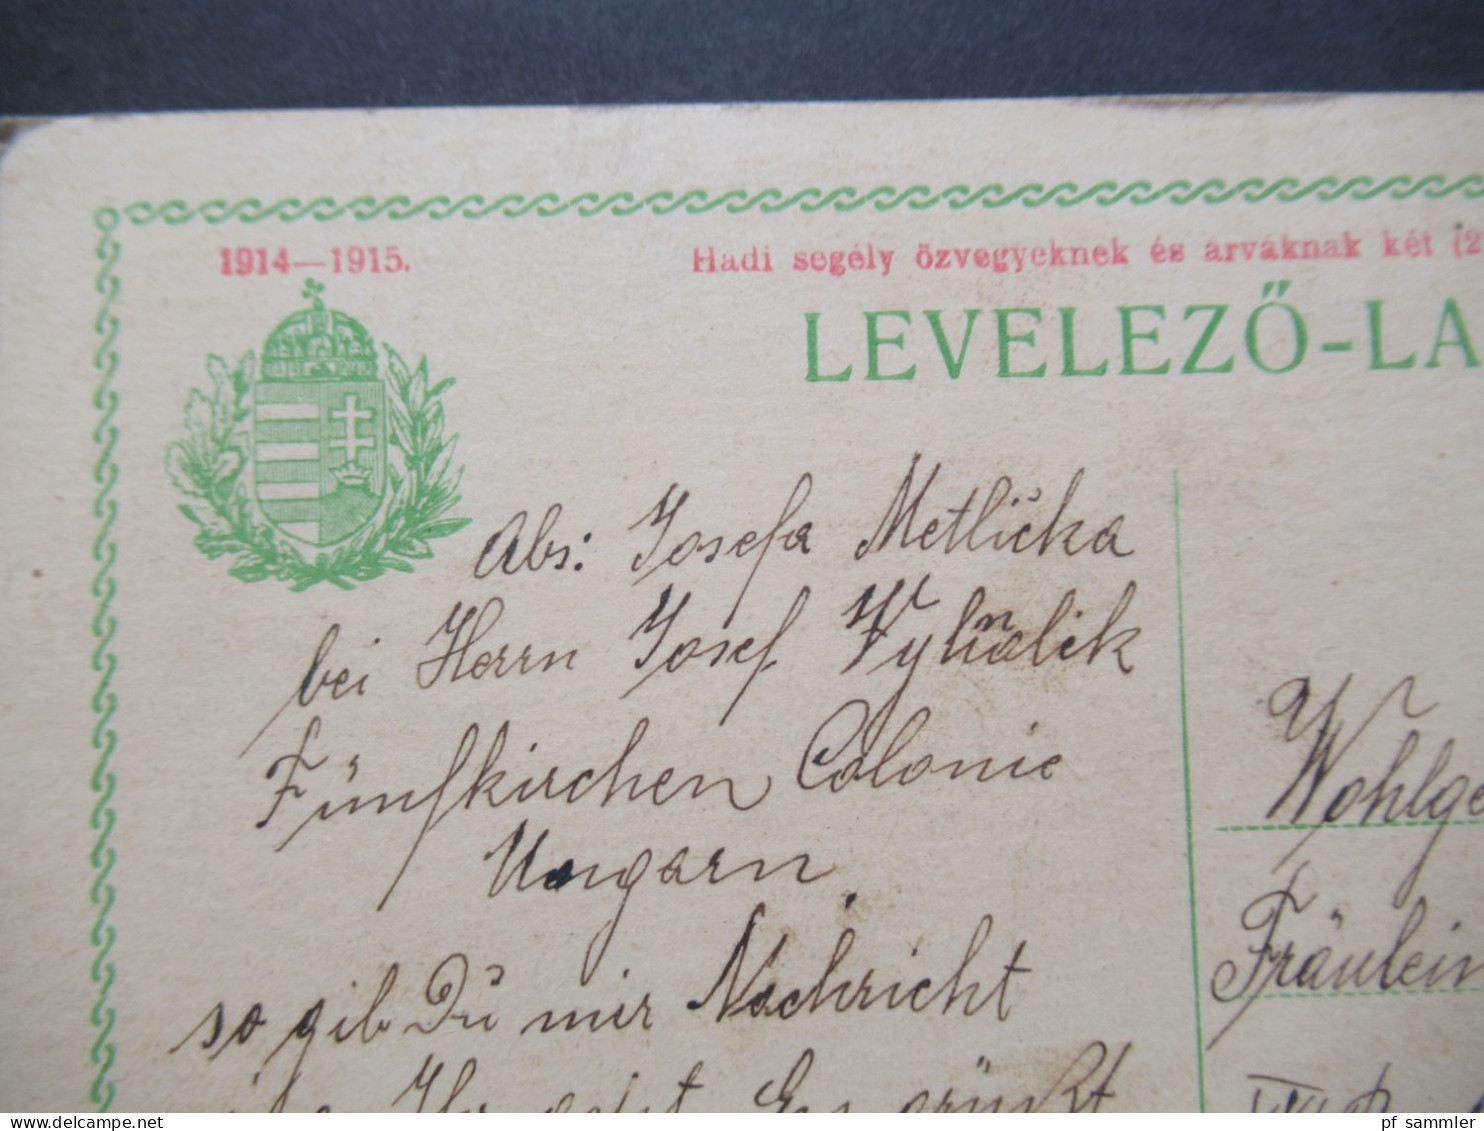 1914—1915.
Hadi segély özvegyeknek és árváknak két (2
LEVELEZŐ-LA
Abs: Josefa Metlička
bei Herrn Josef
Fünfkirchen Colonie
Ungarn
so gib Du mir Nachricht
Wohlge
Fräulein
pf_sammler